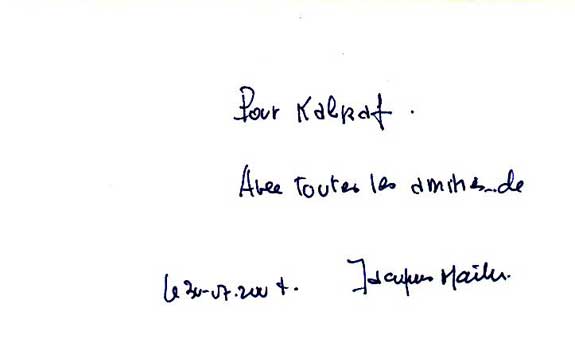 Pour Kalkaf.
Avec toutes les amitiés de
Le 30-07-2007. Jacques Mailu.